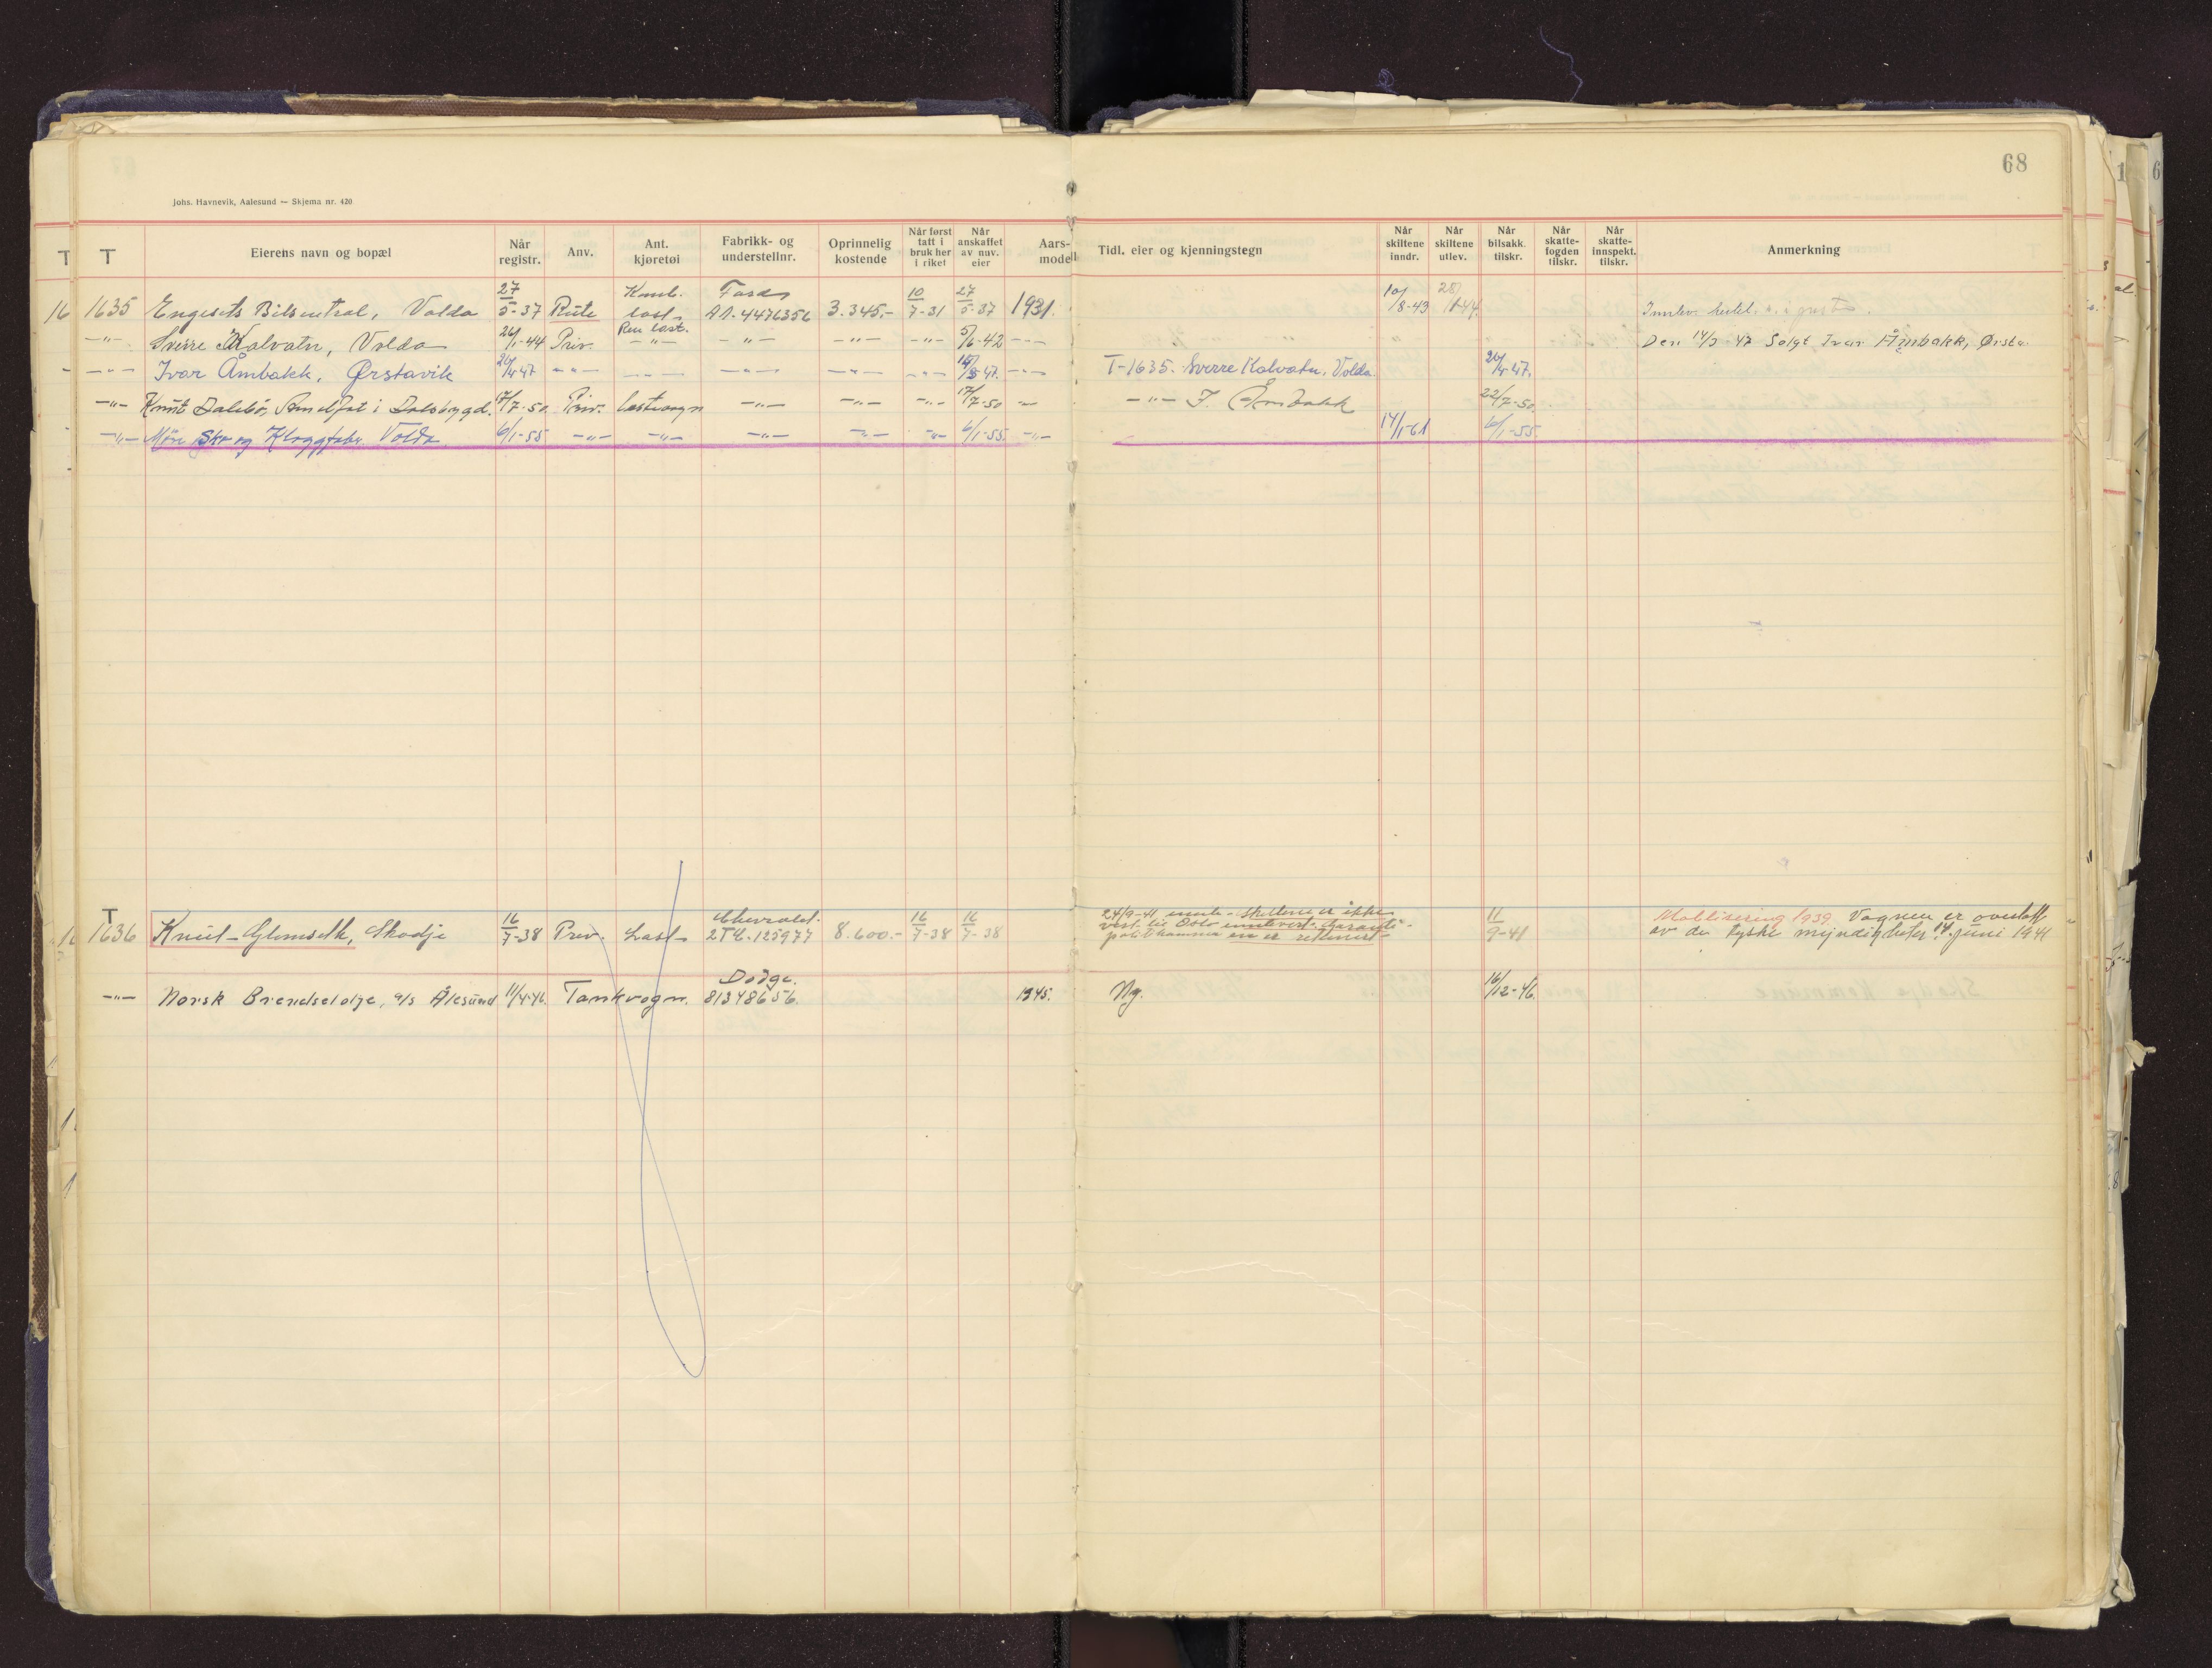 68
Johs. Havnevik, Aalesund — Skjema nr. 420
T T Eierens navn og bopæl Når registr. Anv. Ant. kjøretøi Fabrikk- og understellnr. Oprinnelig kostende Når først tatt i bruk her i riket Når anskaffet av nuv. eier Aars-modell Tidl. eier og kjenningstegn Når skiltene inndr. Når skiltene utlev. Når bilsakk. tilskr. Når skatte-fogden tilskr. Når skatte-innspekt. tilskr. Anmerkning
1635 Engesets Bilsentral, Volda 27/5-37 Rute Komb. last. Ford AA. 4476356 3.345.- 10/7-31 27/5-37 1931. 10/8-43 28/1-44. Innlev.
—"— Sverre Kalvatn, Volda 26/1-44 Priv. Ren last. —"— —"— —"— —"— 5/6-42 —"— Den 14/3-47 Solgt Ivar Åmbakk, Ørsta
—"— Ivar Åmbakk, Ørstavik 26/4-47 —"— —"— —"— —"— —"— —"— T-1635. Sverre Kalvatn, Volda. 26/4-47.
—"— Knut Dalsbø, i Dalsbygd. 17/7-50 Priv. lastvogn —"— —"— —"— 17/7-50 —"— —"— I. Åmbakk 22/7-50.
—"— Møre Sko og Kloggfabr. Volda. 6/1-55 —"— —"— —"— —"— —"— 6/1-55. —"— 14/1-61 6/1-55
T 1636 Knut Glomseth, Skodje 16/7-38 Priv. Last Chevrolet. 2TC.125977 8.600.- 16/7-38 16/7-38 24/9-41 skiltene er ikke 11/9-41 Mobilisering 1939. Vognen er overtatt
av de tyske myndigheter 14. juni 1941
—"— Norsk Brendselolje, a/s Ålesund 11/4-46. Tankvogn. Dodge. 81348656. 1945. Ny. 16/12-46.